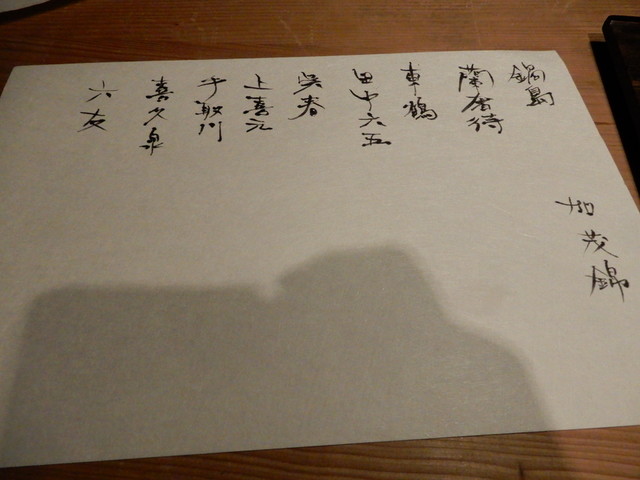 鍋島
蘭奢待
東鶴
田中六五
呉春
上喜元
千駒
喜久泉
六友
加茂錦